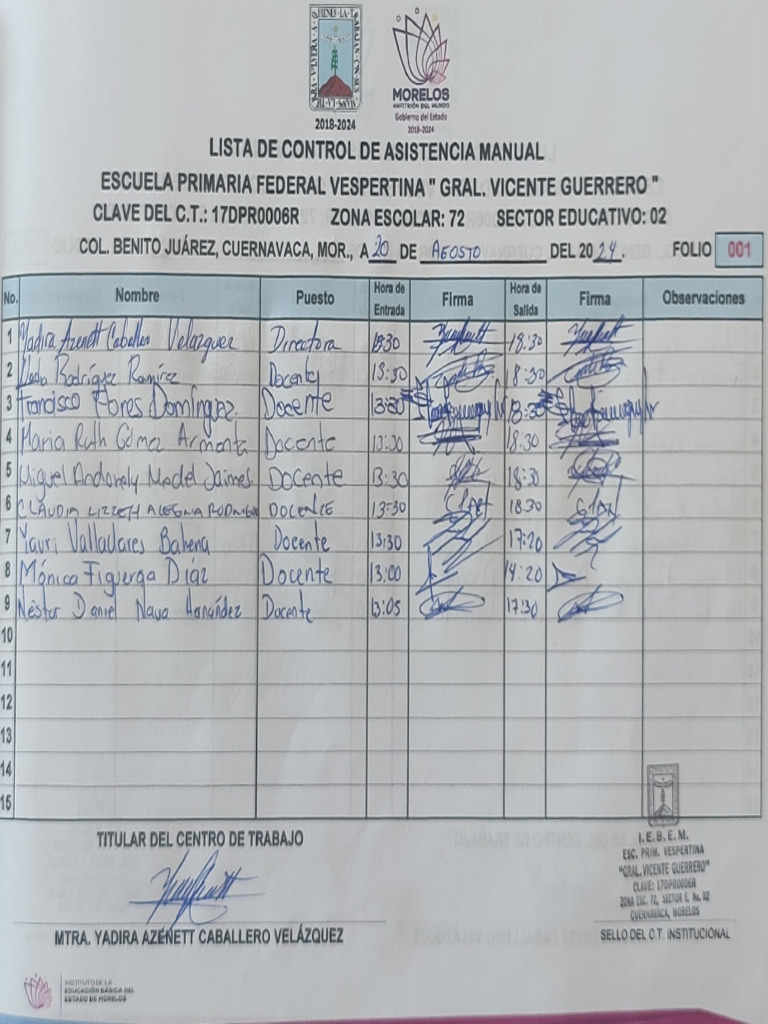 MORELOS
ANFITRIÓN DEL MUNDO
Gobierno del Estado
2018-2024
2018-2024
LISTA DE CONTROL DE ASISTENCIA MANUAL
ESCUELA PRIMARIA FEDERAL VESPERTINA " GRAL. VICENTE GUERRERO "
CLAVE DEL C.T.: 17DPR0006R ZONA ESCOLAR: 72 SECTOR EDUCATIVO: 02
COL. BENITO JUÁREZ, CUERNAVACA, MOR., A 20 DE AGOSTO DEL 2024. FOLIO 001
No. Nombre Puesto Hora de Entrada Firma Hora de Salida Firma Observaciones
1 Yadira Azenett Caballero Velazquez Directora 13:30 18:30
2 Rodríguez Ramírez Docente 13:30 18:30
3 Francisco Flores Domínguez. Docente 13:30 18:30
4 Maria Ruth Gómez Armenta Docente 13:30 18:30
5 Miguel Medel Jaimes Docente 13:30 18:30
6 CLAUDIA LIZZETH DOCENTE 13:30 18:30
7 Yauri Valladares Bahena Docente 13:30 17:20
8 Mónica Figueroa Díaz Docente 13:00 14:20
9 Néstor Daniel Nava Hernández Docente 13:05 17:30
10
11
12
13
14
15
TITULAR DEL CENTRO DE TRABAJO
MTRA. YADIRA AZENETT CABALLERO VELÁZQUEZ
I.E.B.E.M.
ESC. PRIM. VESPERTINA
"GRAL. VICENTE GUERRERO"
CLAVE: 17DPR0006R
ZONA ESC. 72, SECTOR E. No. 02
CUERNAVACA, MORELOS
SELLO DEL C.T. INSTITUCIONAL
INSTITUTO DE LA
EDUCACIÓN BÁSICA DEL
ESTADO DE MORELOS